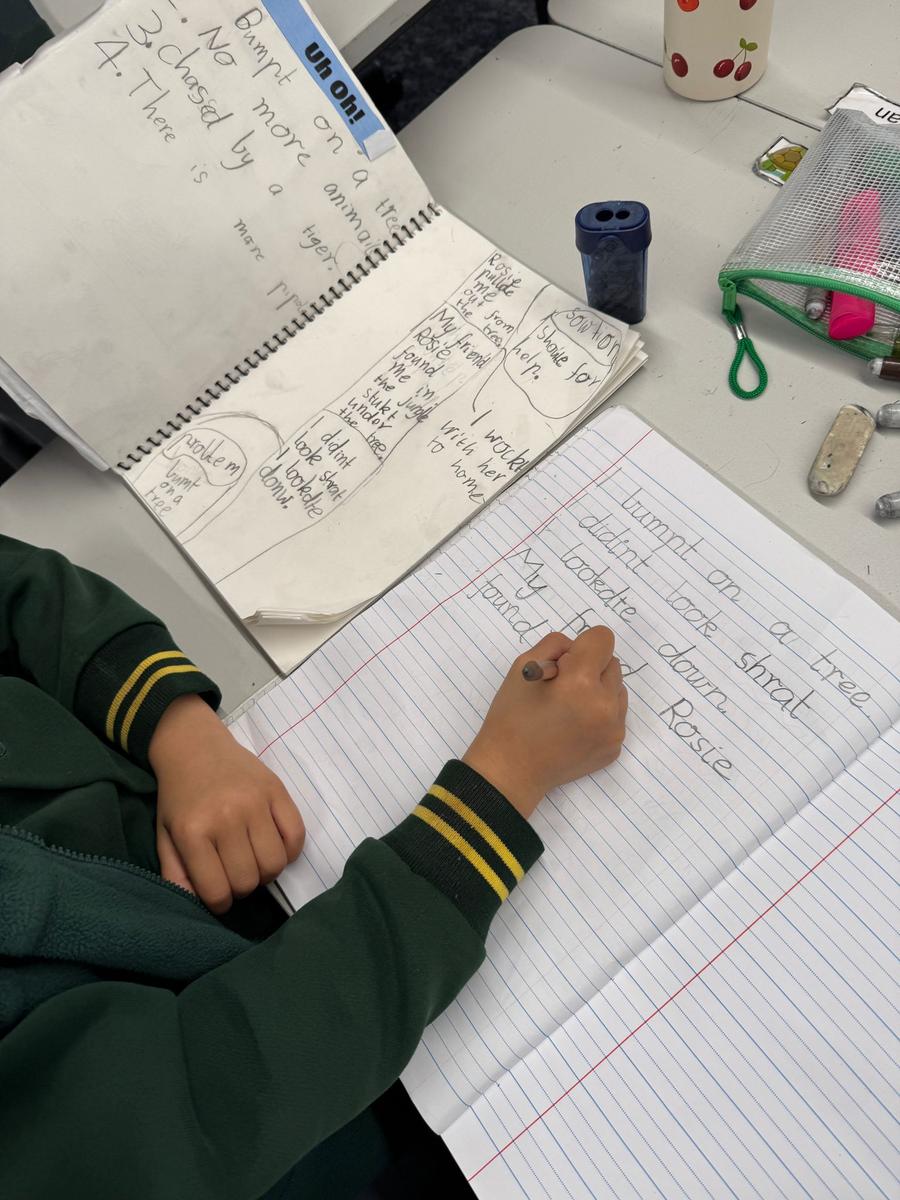 Uh Oh!
Bumpt on a tree
No more animals
3. Chased by a tiger.
4. There is more
problem
bumt
on a
tree
I didint
look shrat
I lookdte
donw.
My friend
Rosie
found
me in
the jungle
stukt
under
the tree.
Rosie
pullde
me
out from
the tree.
solution
Shoute for
help.
I wockt
with her
to home
I bumpt on a tree.
I didint look shrat
I lookdte down.
My Rosie
found
an